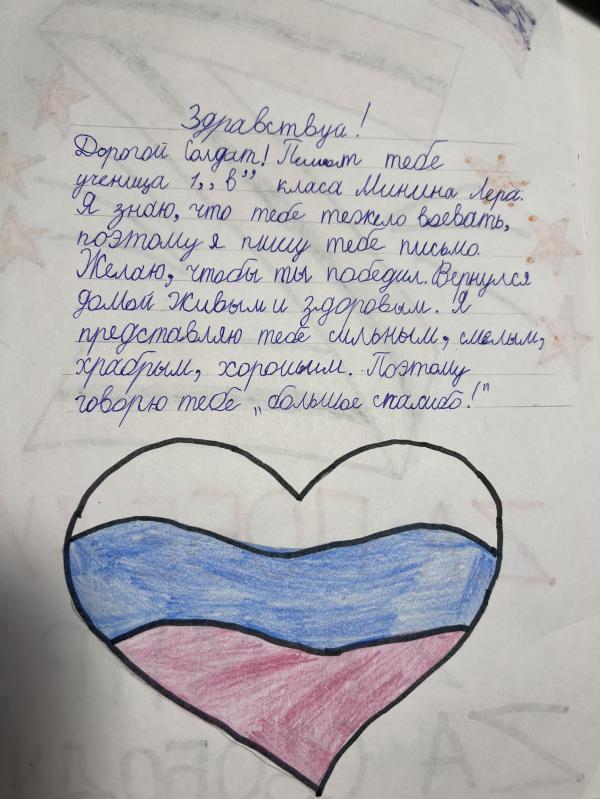 Здравствуа!
Дорогой Солдат! Пишет тебе
ученица 1,, в" класа Минина Лера.
Я знаю, что тебе тежело воевать,
поэтому я пишу тебе письмо.
Желаю, чтобы ты победил. Вернулся
домой живым и здоровым. Я
представляю тебе сильным, смелым,
храбрым, хорошым. Поэтому
говорю тебе „большое спасибо!"